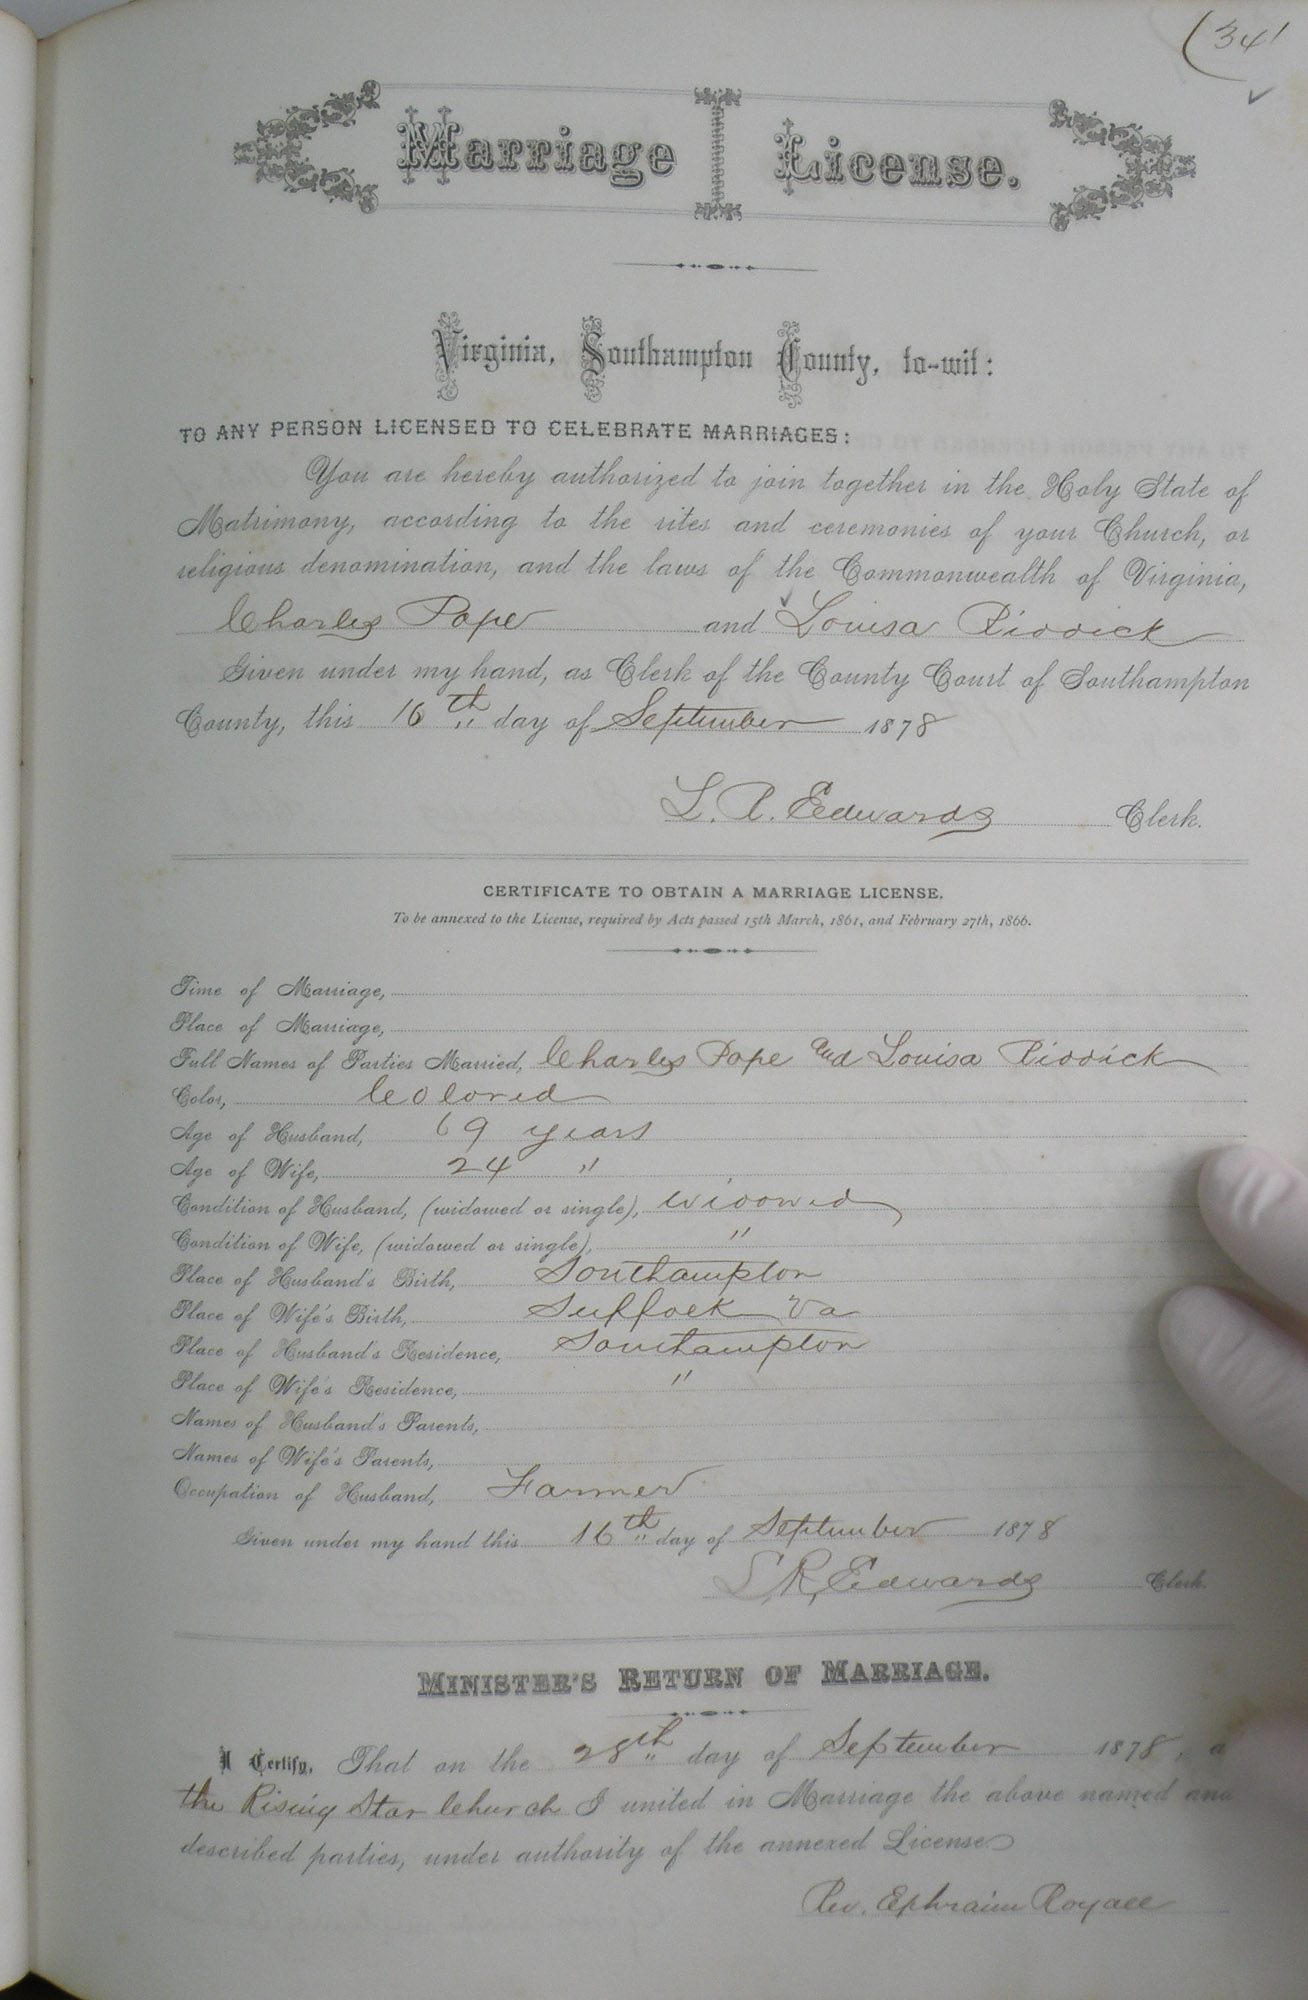 (341
Marriage License.
Virginia, Southampton County, to-wit:
TO ANY PERSON LICENSED TO CELEBRATE MARRIAGES:
You are hereby authorized to join together in the Holy State of
Matrimony, according to the rites and ceremonies of your Church, or
religious denomination, and the laws of the Commonwealth of Virginia,
Charles Pope and Louisa Riddick
Given under my hand, as Clerk of the County Court of Southampton
County, this 16th day of September 1878
L. R. Edwards Clerk.
CERTIFICATE TO OBTAIN A MARRIAGE LICENSE.
To be annexed to the License, required by Acts passed 15th March, 1861, and February 27th, 1866.
Time of Marriage,
Place of Marriage,
Full Names of Parties Married, Charles Pope and Louisa Riddick
Color, Colored
Age of Husband, 69 years
Age of Wife, 24 "
Condition of Husband, (widowed or single), widowed
Condition of Wife, (widowed or single), "
Place of Husband's Birth, Southampton
Place of Wife's Birth, Suffolk Va
Place of Husband's Residence, Southampton
Place of Wife's Residence, "
Names of Husband's Parents,
Names of Wife's Parents,
Occupation of Husband, Farmer
Given under my hand this 16th day of September 1878
L. R. Edwards Clerk.
MINISTER'S RETURN OF MARRIAGE.
I Certify, That on the 28th day of September 1878, a
the Rising Star Church I united in Marriage the above named and
described parties, under authority of the annexed License
Rev. Ephraim Royall